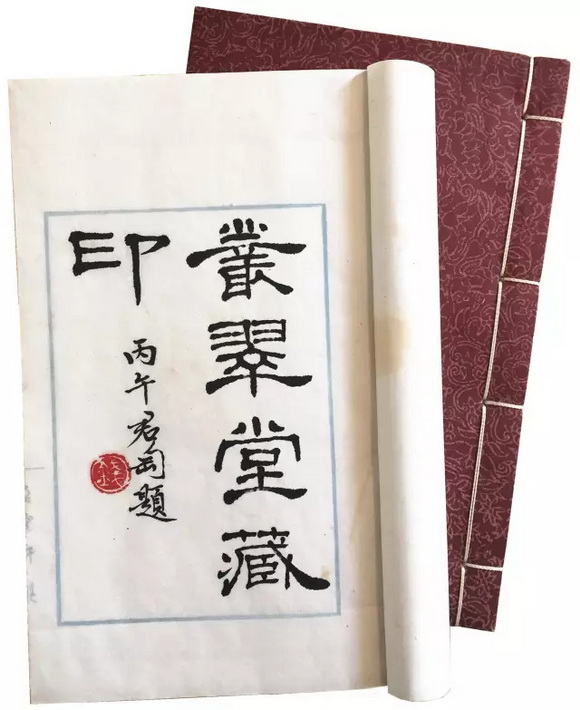 叢翠堂藏
印
丙午君匋題